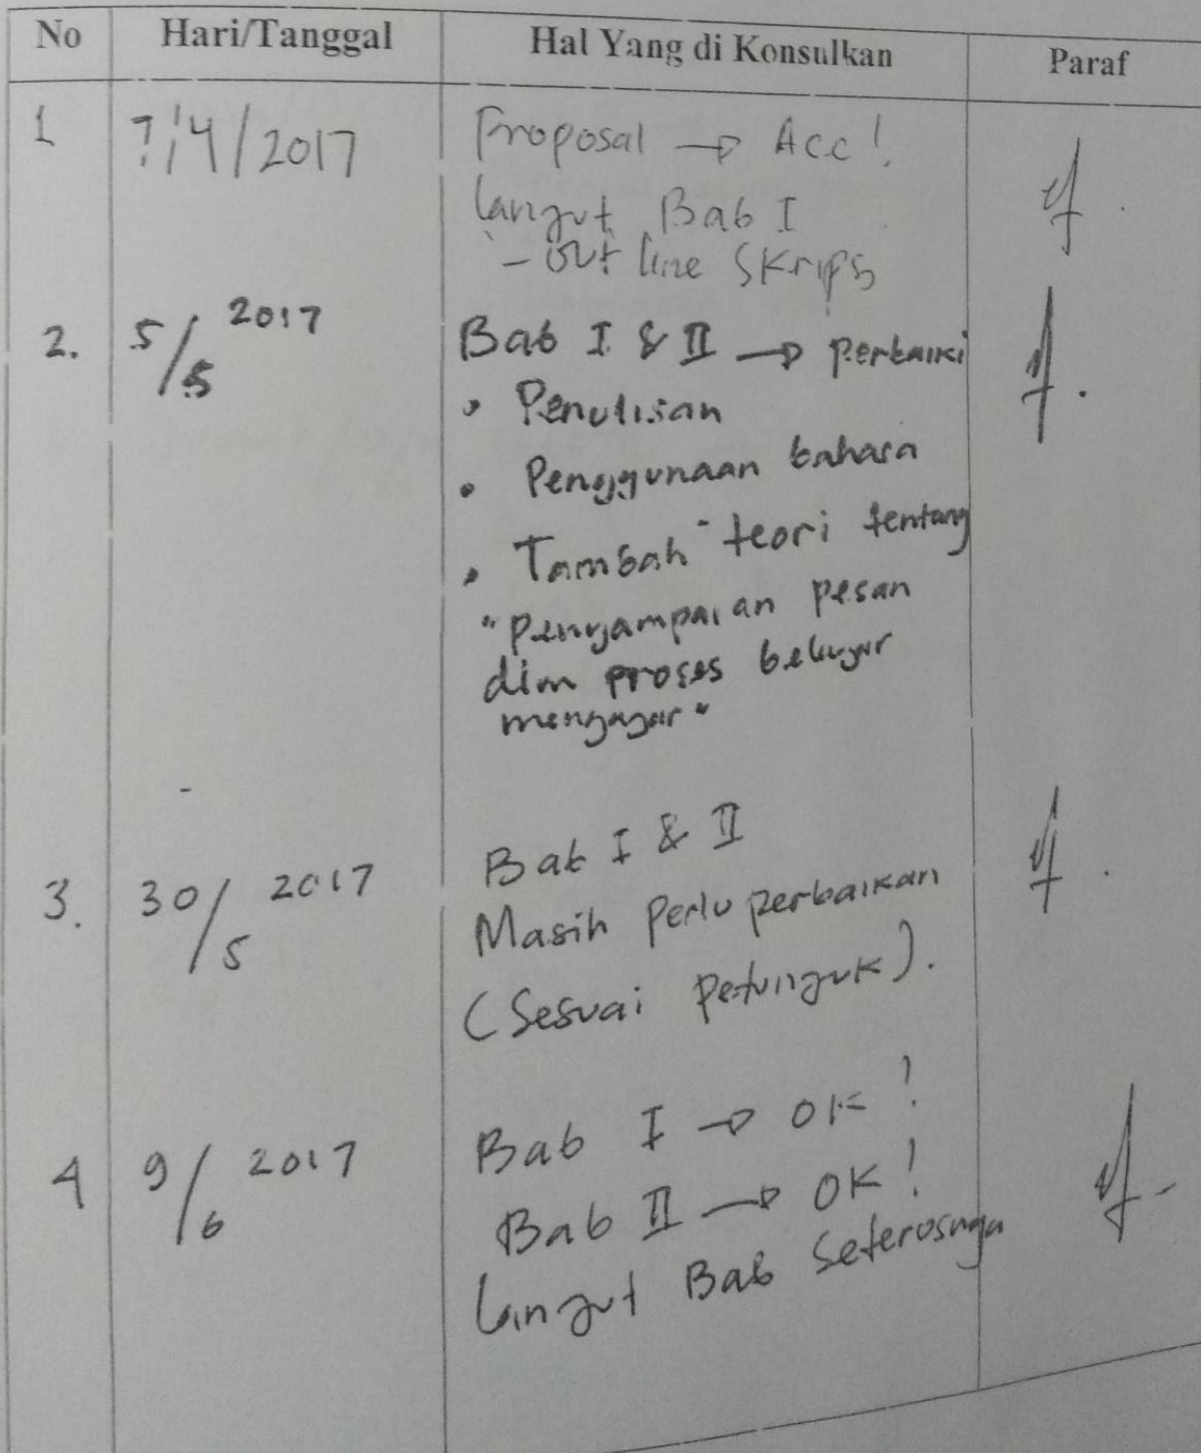 No Hari/Tanggal Hal Yang di Konsulkan Paraf
1 7/4/2017 Proposal → Acc!
Lanjut Bab I
- Out line Skripsi
2. 5/5 2017 Bab I & II → Perbaiki
• Penulisan
• Penggunaan bahasa
• Tambah teori tentang
"Penyampaian pesan
dlm proses belajar
mengajar"
3. 30/5 2017 Bab I & II
Masih Perlu perbaikan
(Sesuai Petunjuk).
4 9/6 2017 Bab I → OK!
Bab II → OK!
Lanjut Bab Seterusnya